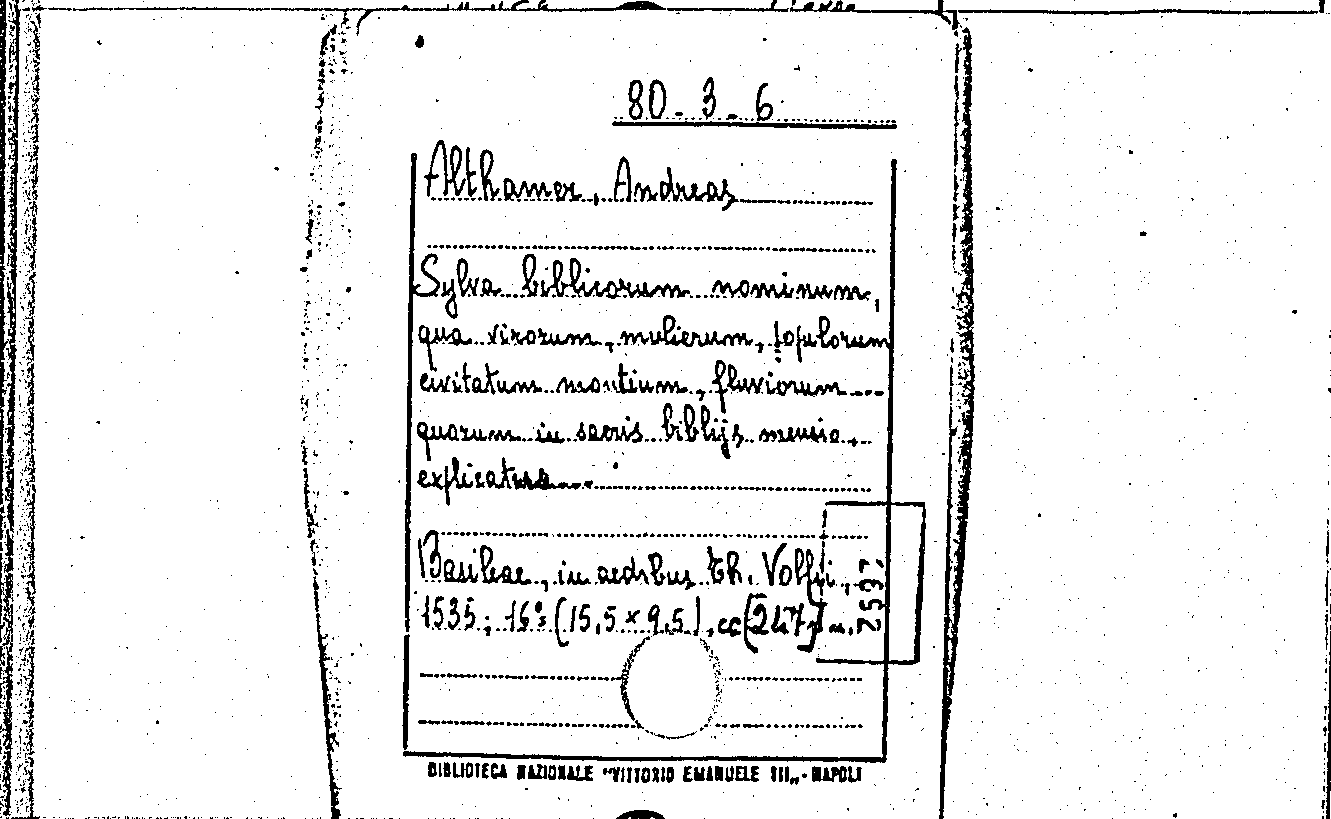 80-3-6
Althamer, Andreas
Sylva biblicorum nominum,
qua virorum, mulierum, populorum
civitatum montium, fluviorum...
quorum in sacris biblijs mensio,
explicature...
Basileae, in aedibus Th. Volfii,
1535; 16º (15,5 x 9,5), cc [247] n.
2597
BIBLIOTECA NAZIONALE "VITTORIO EMANUELE III„ - NAPOLI